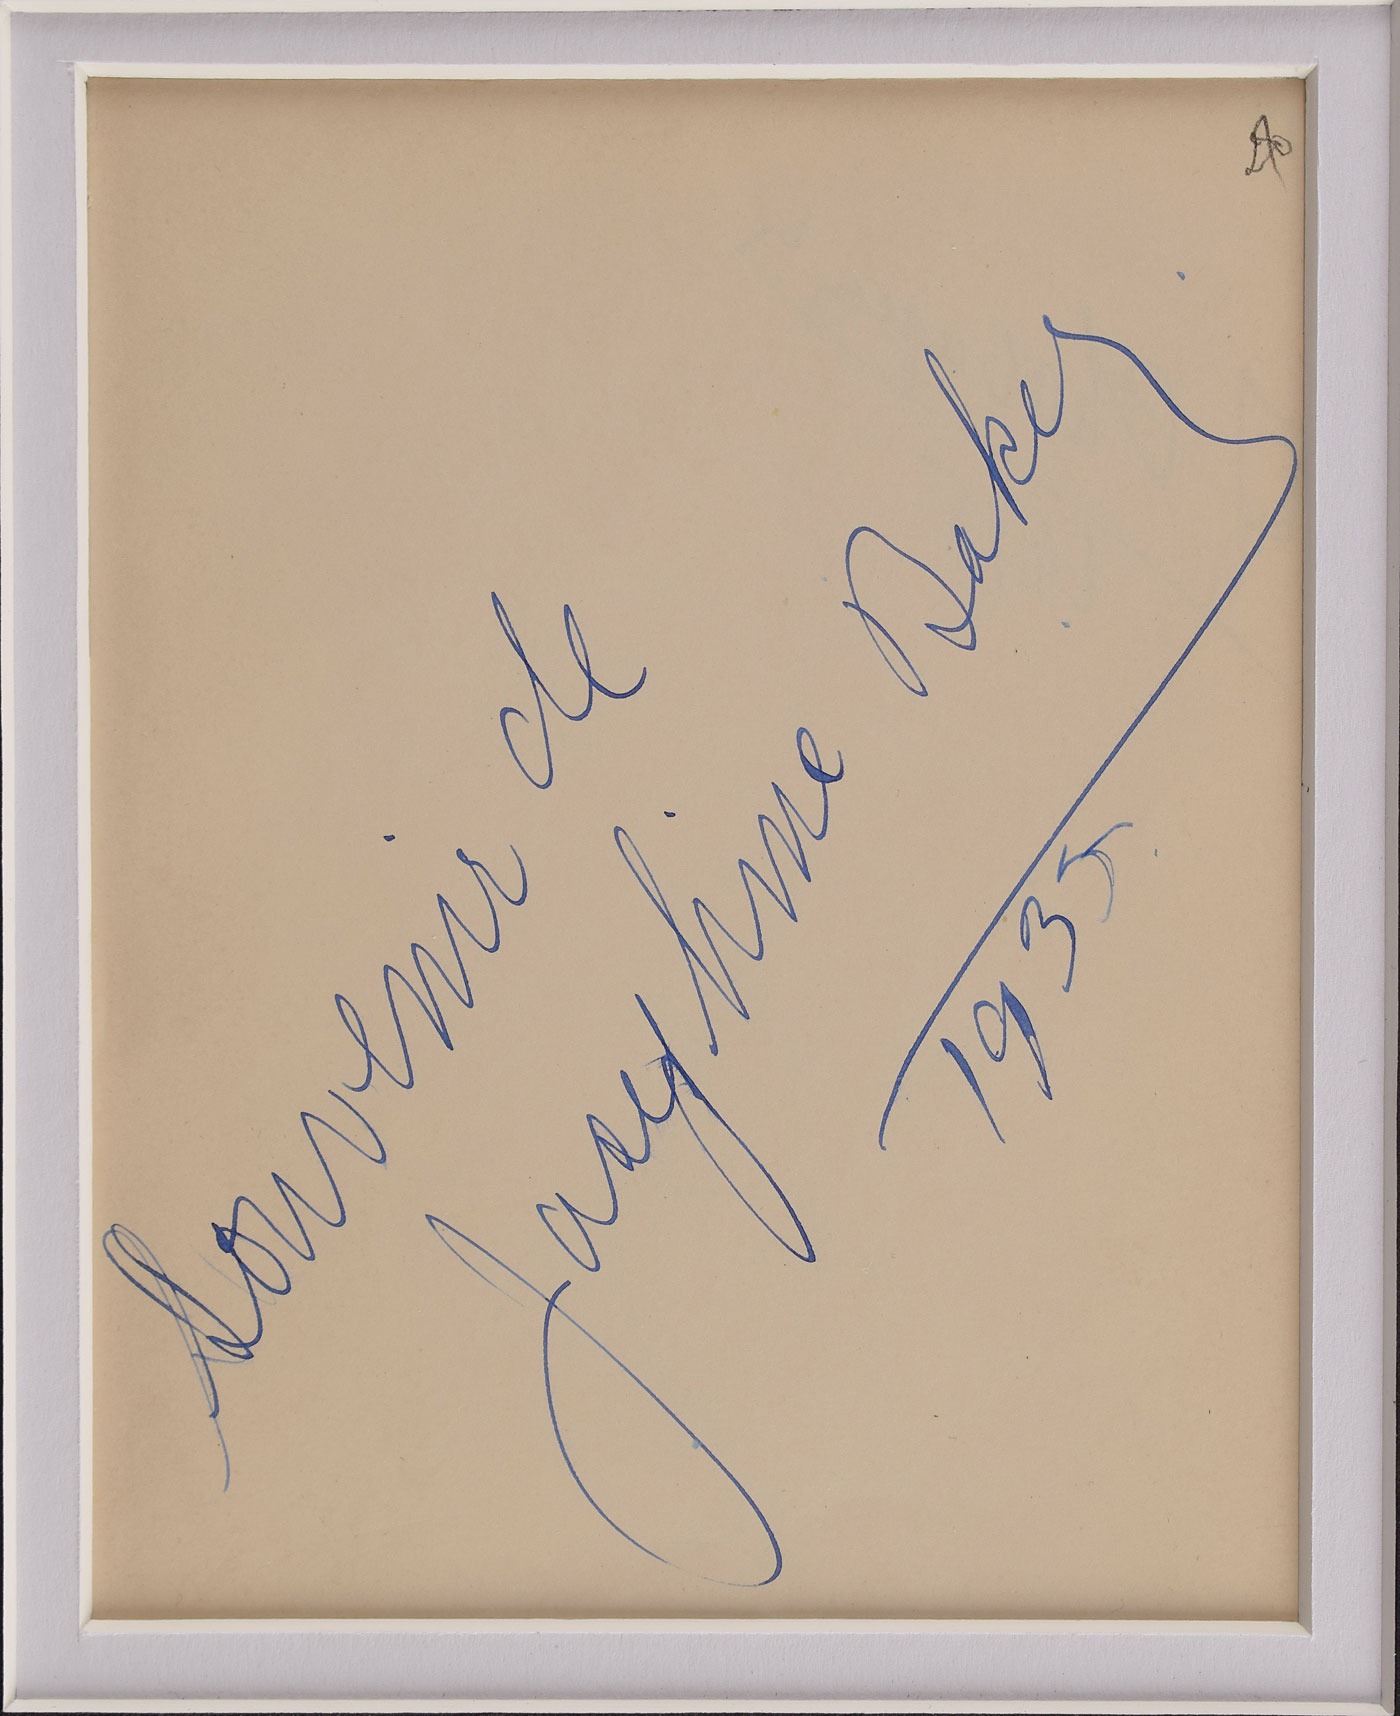 Souvenir de
Josephine Baker
1935